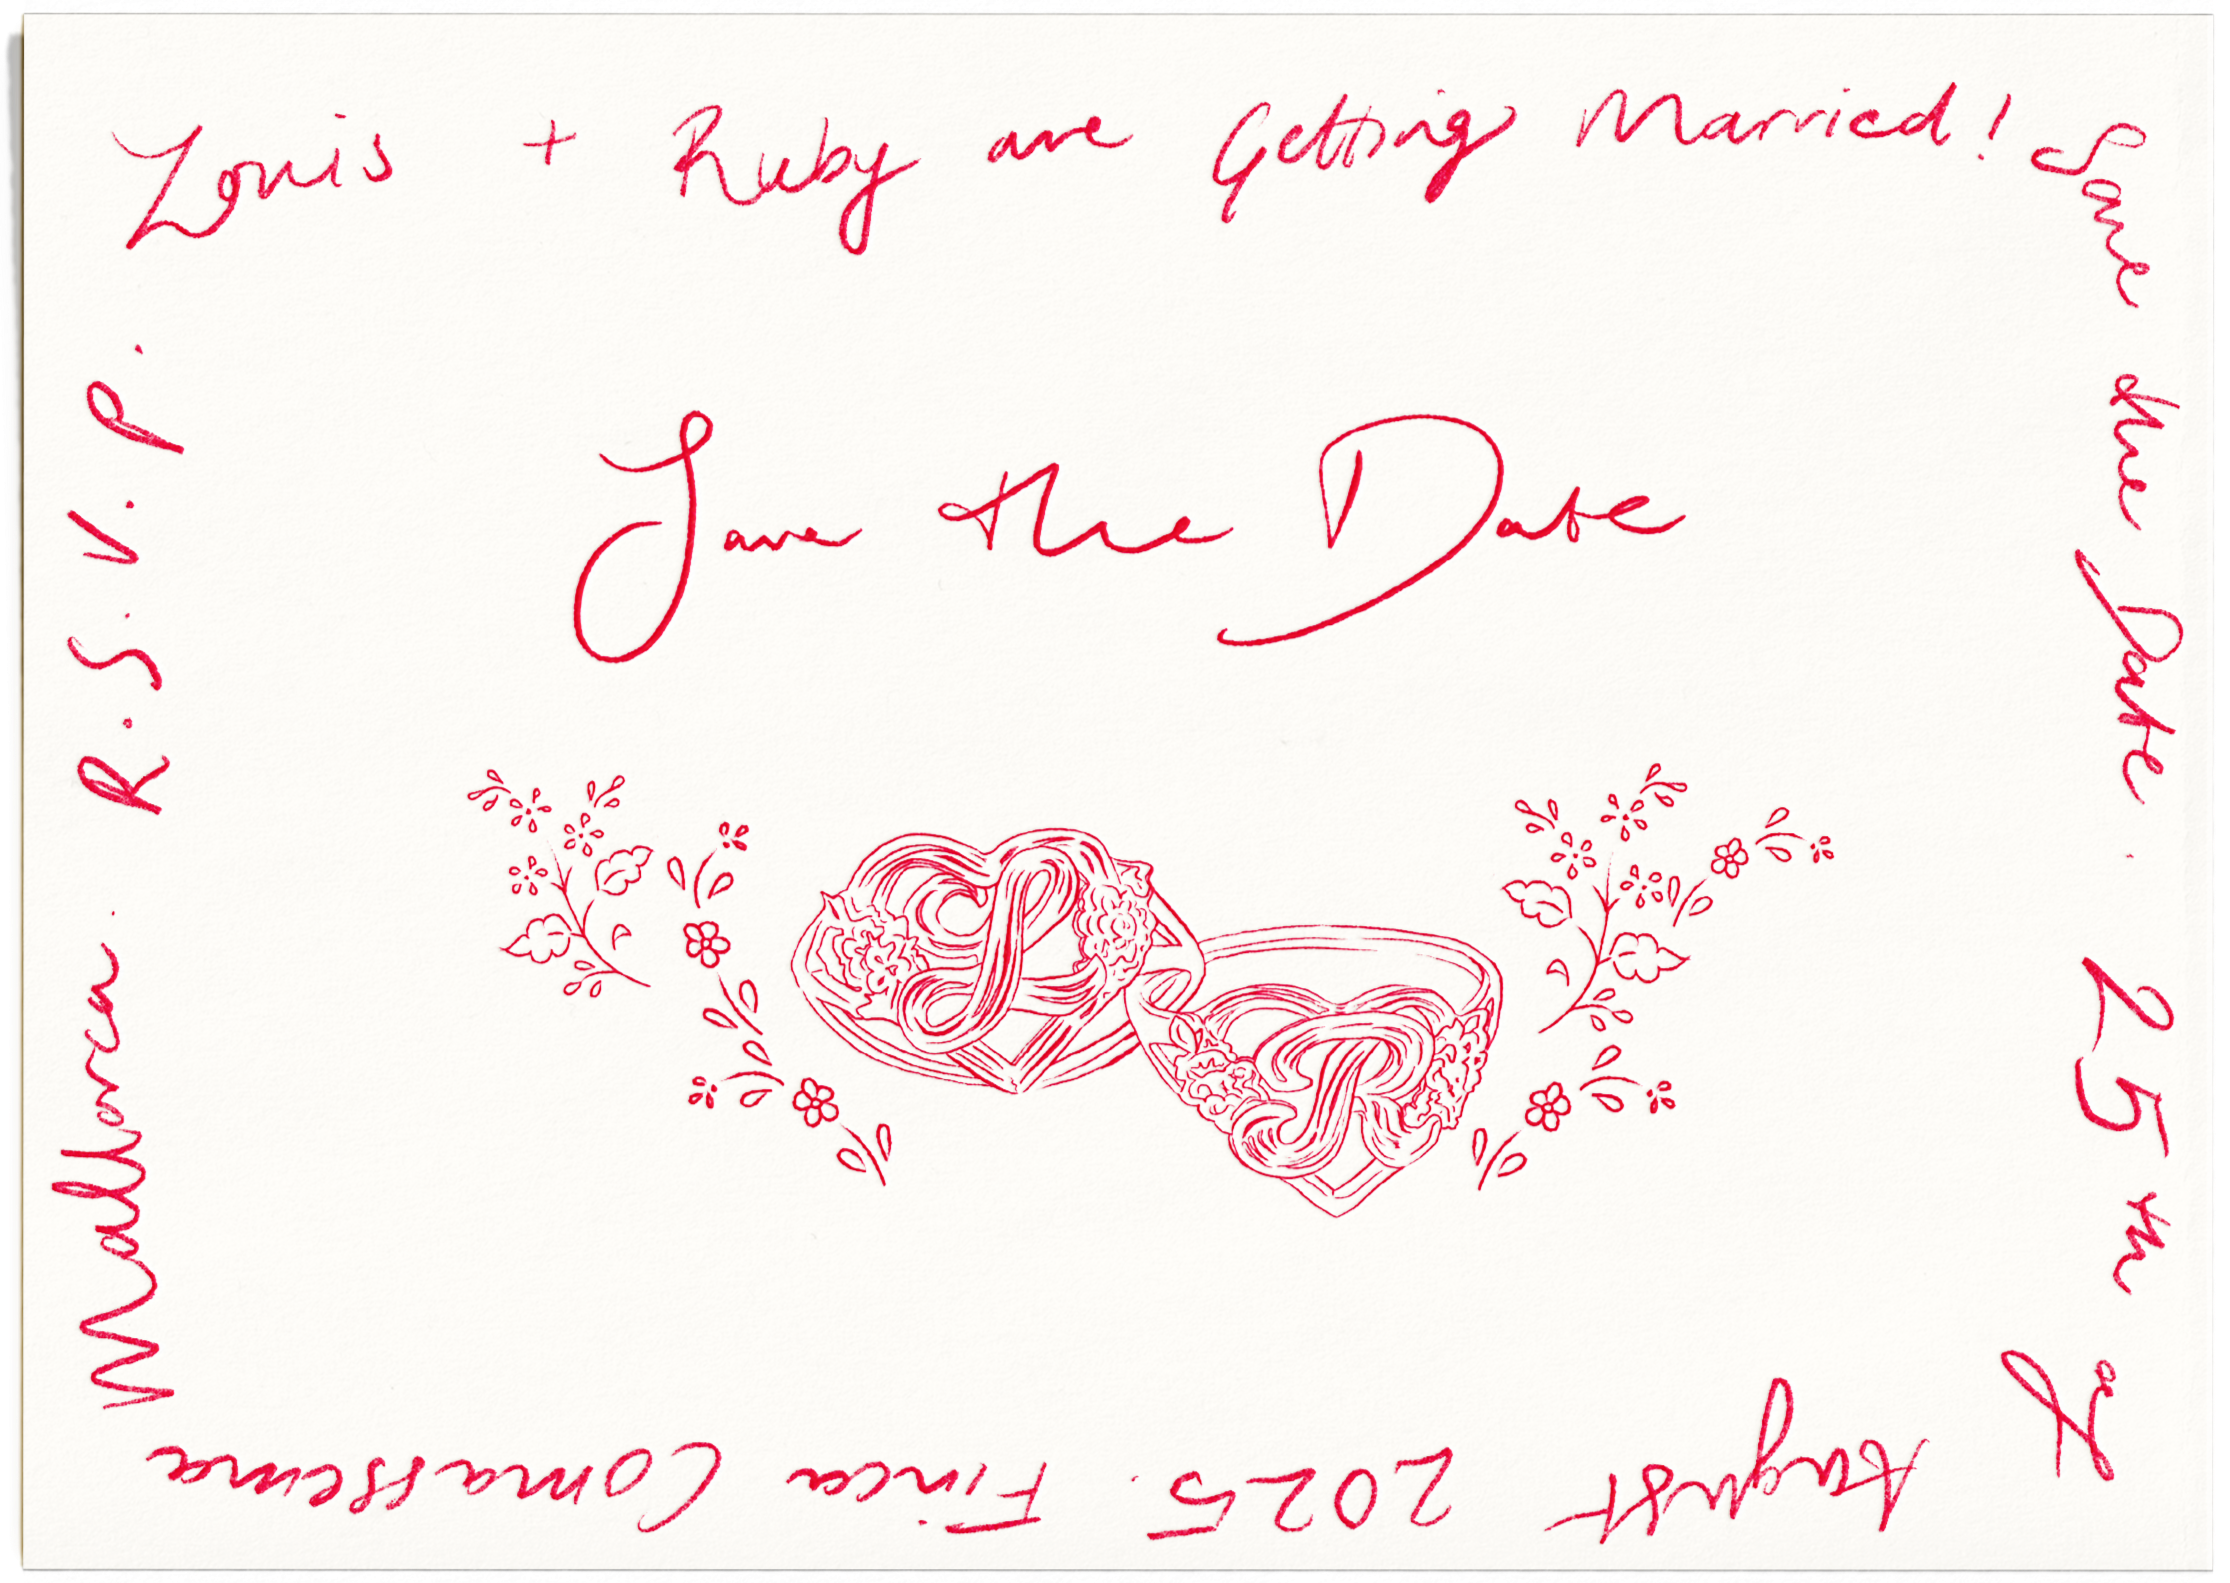 Louis + Ruby are Getting Married!
Save the Date.
25th of
August 2025. Finca Comassema
Mallorca. R.S.V.P.
Save the Date
L
R